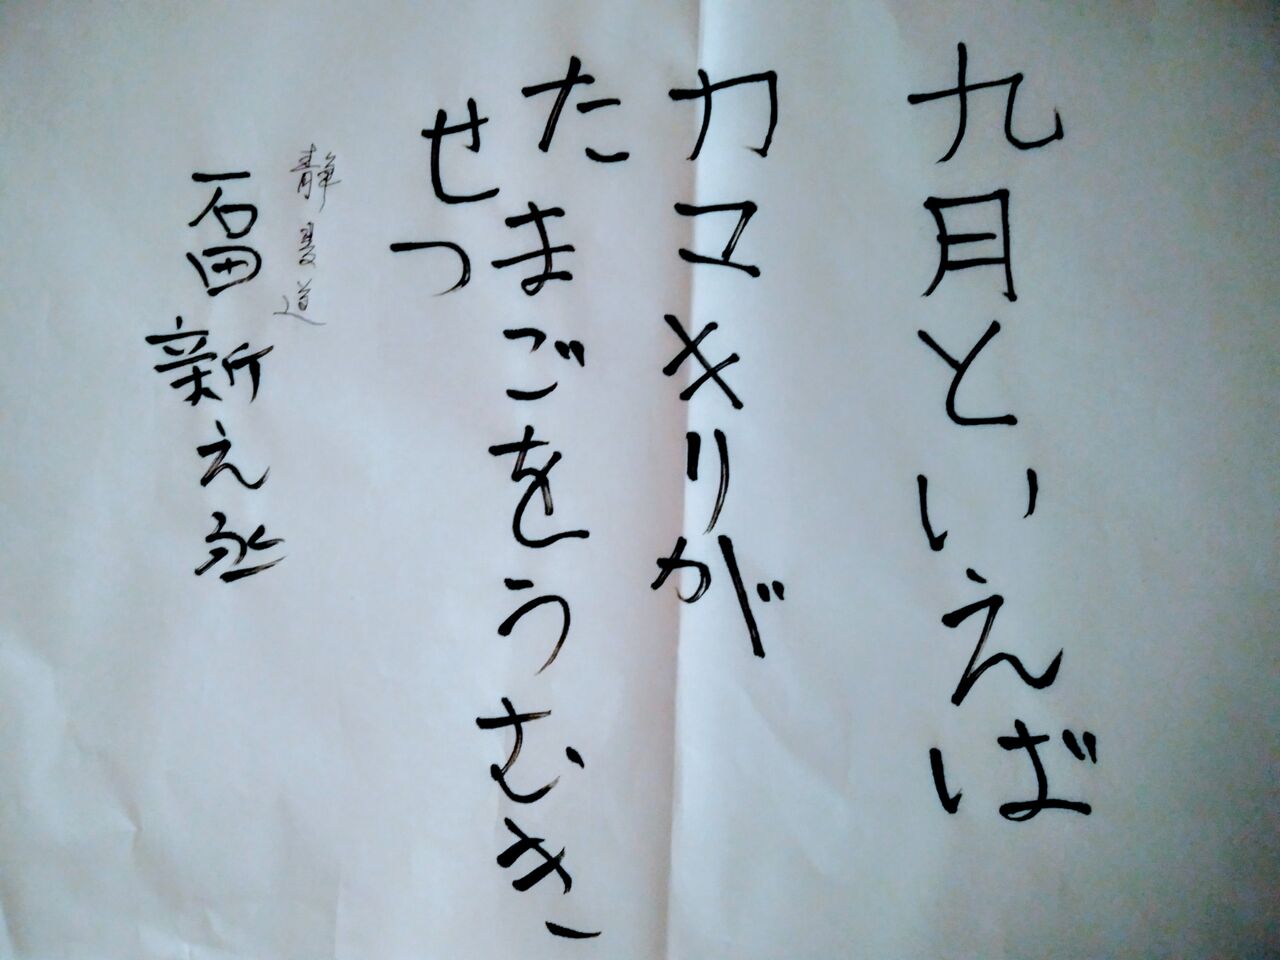 九月といえば
カマキリが
たまごをうむき
せつ
石田新え丞